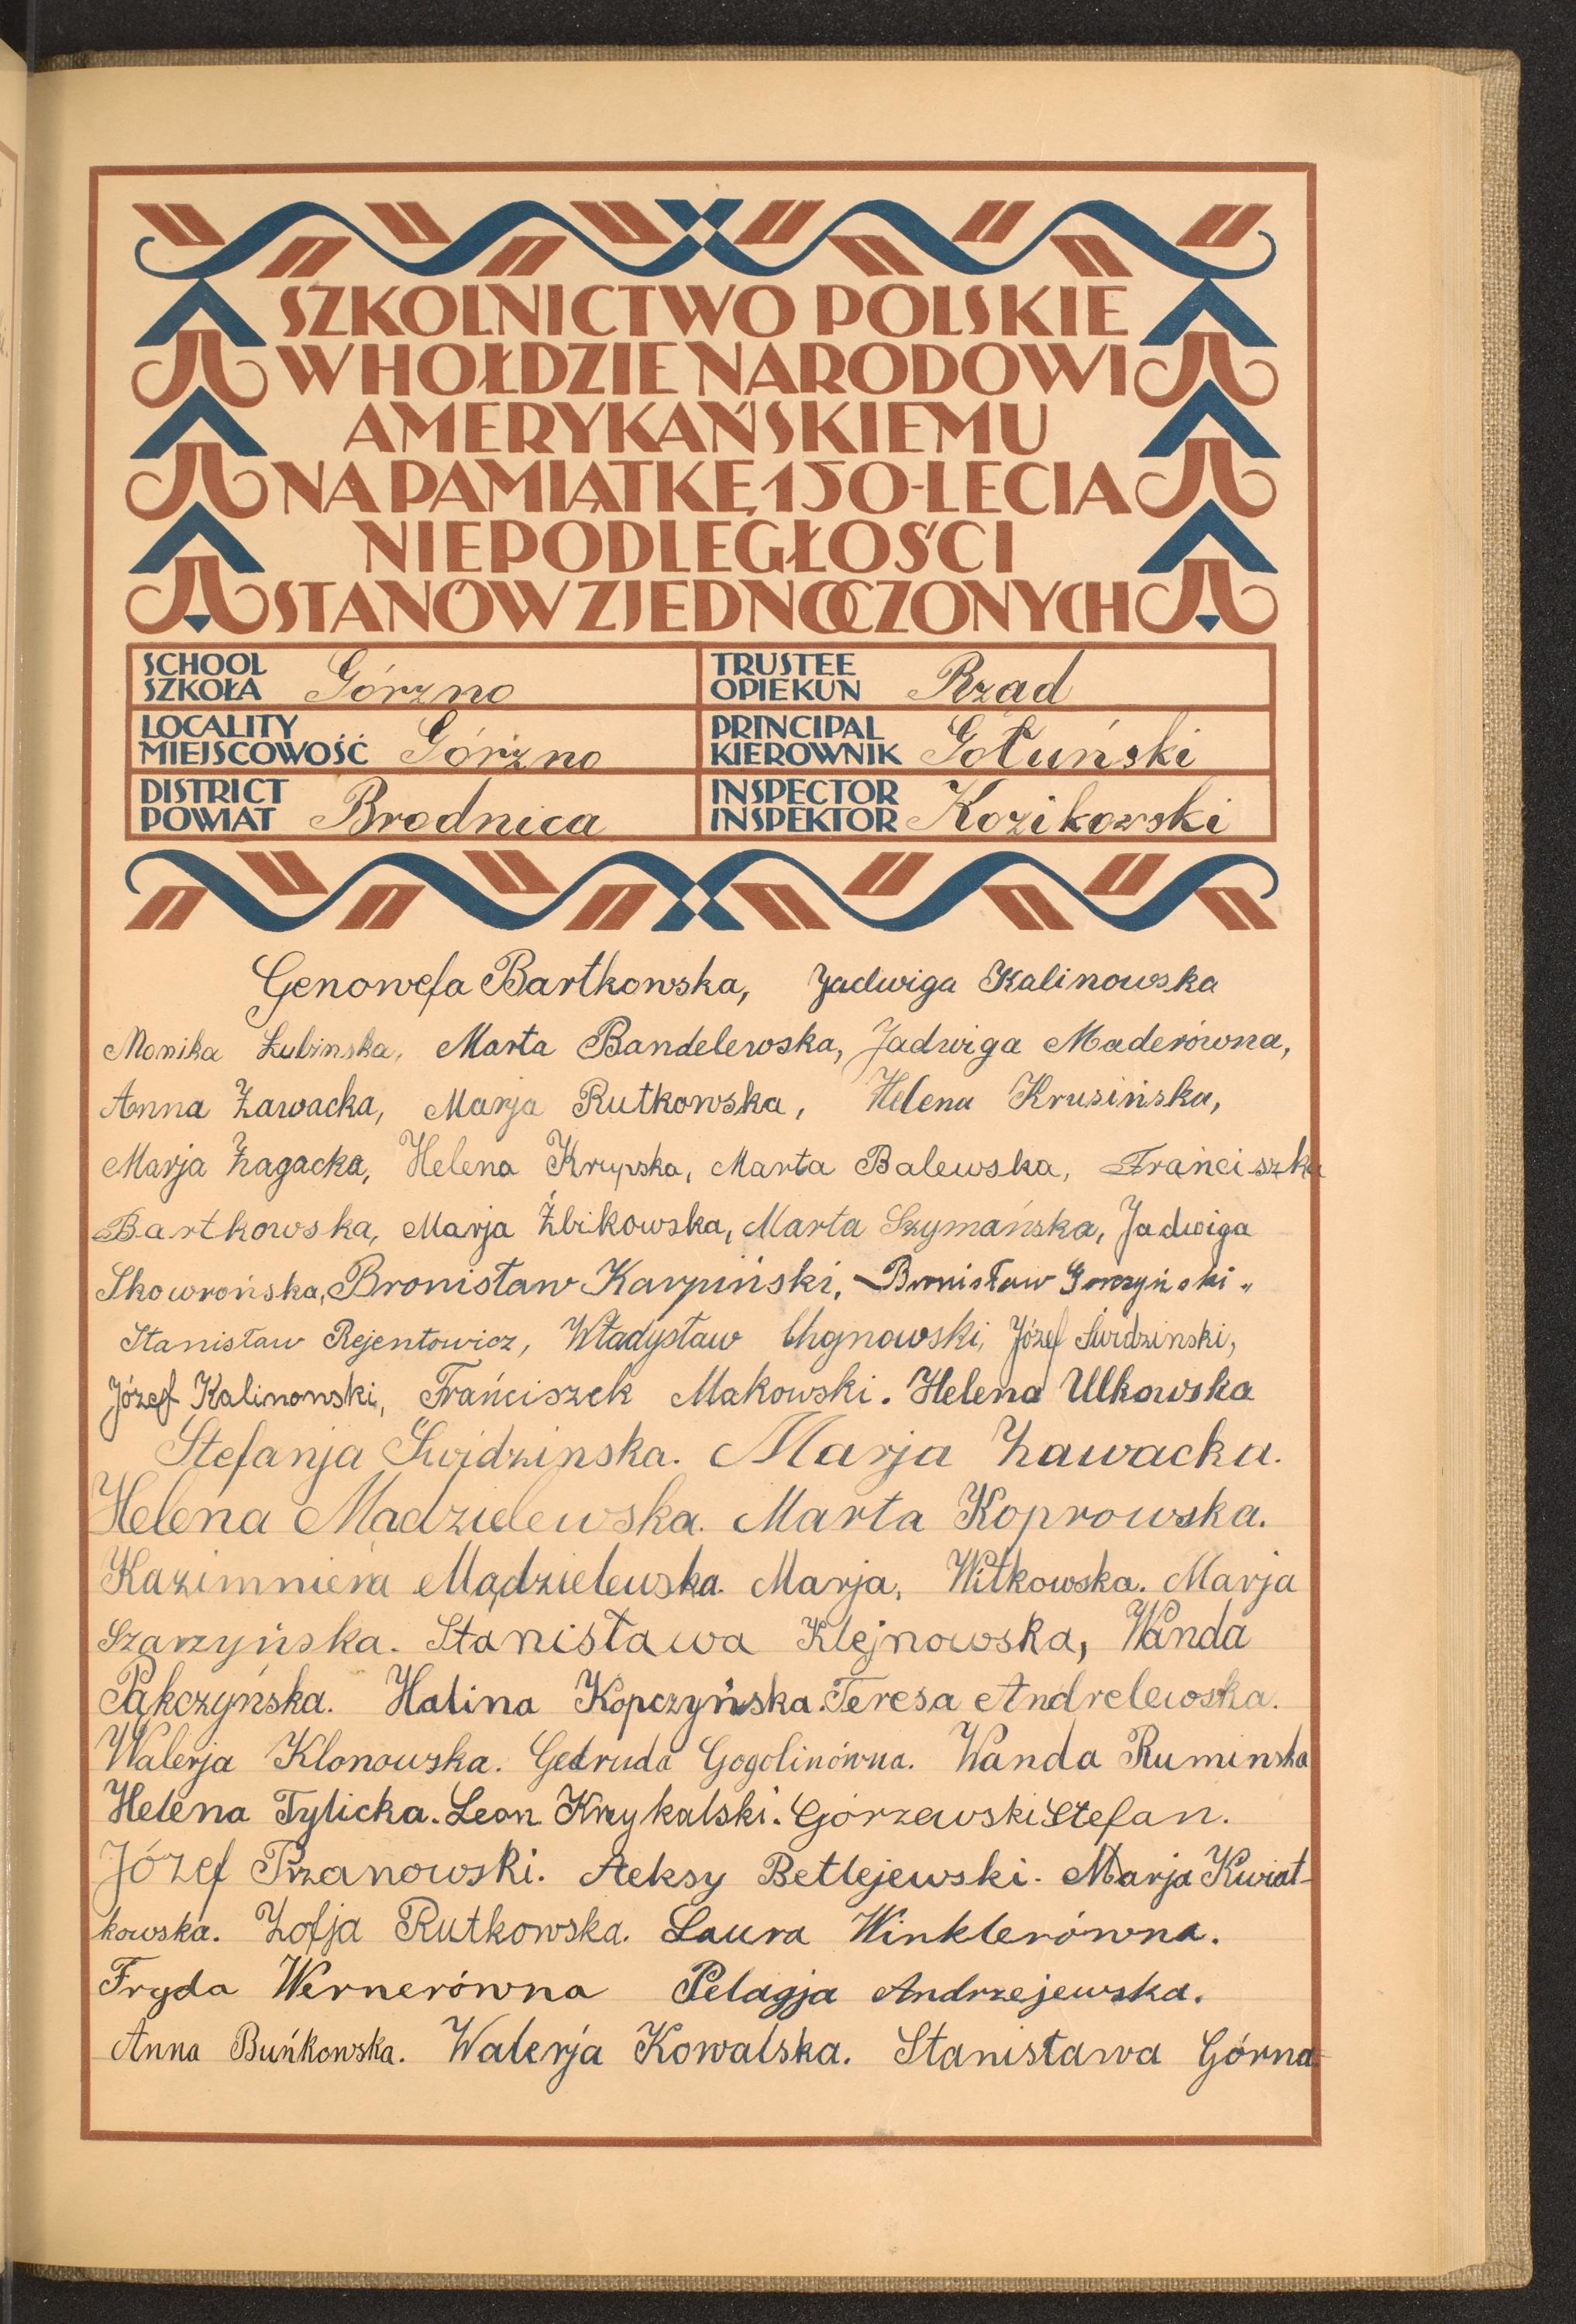 SZKOLNICTWO POLSKIE
W HOŁDZIE NARODOWI
AMERYKAŃSKIEMU
NA PAMIĄTKĘ 150-LECIA
NIEPODLEGŁOŚCI
STANÓW ZJEDNOCZONYCH
SCHOOL
SZKOŁA Górzno
TRUSTEE
OPIEKUN Rząd
LOCALITY
MIEJSCOWOŚĆ Górzno
PRINCIPAL
KIEROWNIK Gołuński
DISTRICT
POWIAT Brodnica
INSPECTOR
INSPEKTOR Kozikowski
Genowefa Bartkowska, Jadwiga Kalinowska
Monika Łubinska, Marta Bandelewska, Jadwiga Maderówna,
Anna Zawacka, Marja Rutkowska, Helena Krusińska,
Marja Zagacka, Helena Krupska, Marta Balewska, Frańciszka
Bartkowska, Marja Żbikowska, Marta Szymańska, Jadwiga
Skowrońska, Bronisław Karpiński, Bronisław Gorczyński
Stanisław Rejentowicz, Władysław Chojnowski, Józef Świdzinski,
Józef Kalinowski, Frańciszek Makowski. Helena Ulkowska
Stefanja Świdzinska. Marja Zawacka.
Helena Mądzielewska. Marta Koprowska.
Kazimniera Mądzielewska. Marja, Witkowska. Marja
Szarzyńska. Stanisława Klejnowska, Wanda
Pąkczyńska. Halina Kopczyńska. Teresa Andrelewska.
Walerja Klonowska. Gedruda Gogolinówna. Wanda Ruminska
Helena Tylicka. Leon Krzykalski. Górzewski Stefan.
Józef Przanowski. Aleksy Betlejewski. Marja Kwiat-
kowska. Zofja Rutkowska. Laura Winklerówna.
Fryda Wernerówna Pelagja Andrzejewska.
Anna Buńkowska. Walerja Kowalska. Stanisława Górna